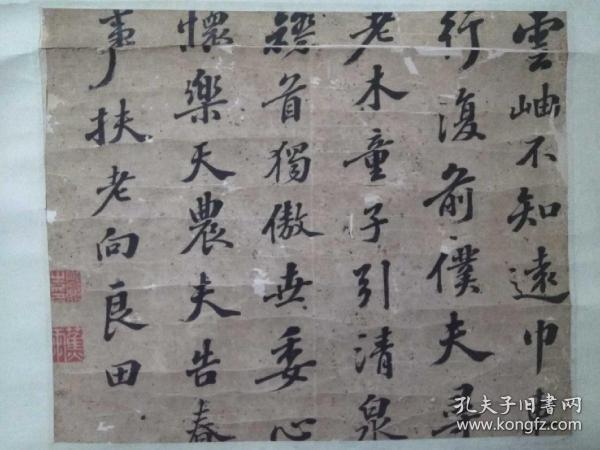 雲岫不知遠巾車
行復前僕夫尋
老木童子引清泉
首獨傲世委心
懷樂天農夫告春
事扶老向良田
孔夫子旧书网
www.kongfz.com